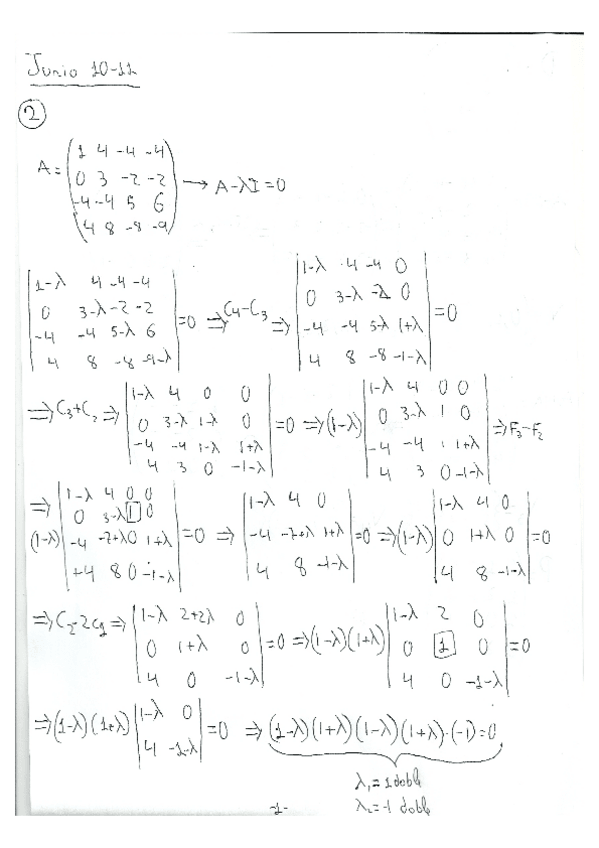 Junio 10-11
2
A = ( 1 4 -4 -4
0 3 -2 -2
-4 -4 5 6
4 8 -8 -9 ) → A-λI = 0
| 1-λ 4 -4 -4
0 3-λ -2 -2
-4 -4 5-λ 6
4 8 -8 -9-λ | = 0 ⇒ C4-C3 ⇒
| 1-λ 4 -4 0
0 3-λ -2 0
-4 -4 5-λ 1+λ
4 8 -8 -1-λ | = 0
⇒ C3+C2 ⇒ | 1-λ 4 0 0
0 3-λ 1-λ 0
-4 -4 1-λ 1+λ
4 3 0 -1-λ | = 0 ⇒ (1-λ)
| 1-λ 4 0 0
0 3-λ 1 0
-4 -4 1 1+λ
4 3 0 -1-λ | ⇒ F3-F2
⇒ (1-λ) | 1-λ 4 0 0
0 3-λ 1 0
-4 -7+λ 0 1+λ
+4 8 0 -1-λ | = 0 ⇒
| 1-λ 4 0
-4 -7+λ 1+λ
4 8 -1-λ | = 0 ⇒ (1-λ)
| 1-λ 4 0
0 1+λ 0
4 8 -1-λ | = 0
⇒ C2-2C1 ⇒ | 1-λ 2+2λ 0
0 1+λ 0
4 0 -1-λ | = 0 ⇒ (1-λ)(1+λ)
| 1-λ 2 0
0 1 0
4 0 -1-λ | = 0
⇒ (1-λ)(1+λ) | 1-λ 0
4 -1-λ | = 0 ⇒ (1-λ)(1+λ)(1-λ)(1+λ)·(-1) = 0
λ1 = 1 doble
λ2 = -1 doble
-1-